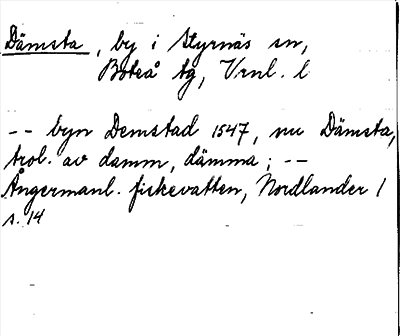 Dämsta, by i Styrnäs sn,
Boteå tg, Vrnl. l
-- byn Demstad 1547, nu Dämsta,
trol. av damm, dämma; --
Ångermanl. fiskevatten, Nordlander 1
s. 14